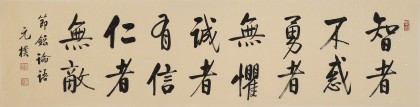 智者
不惑
勇者
無懼
誠者
有信
仁者
無敵
節錄論語
元模